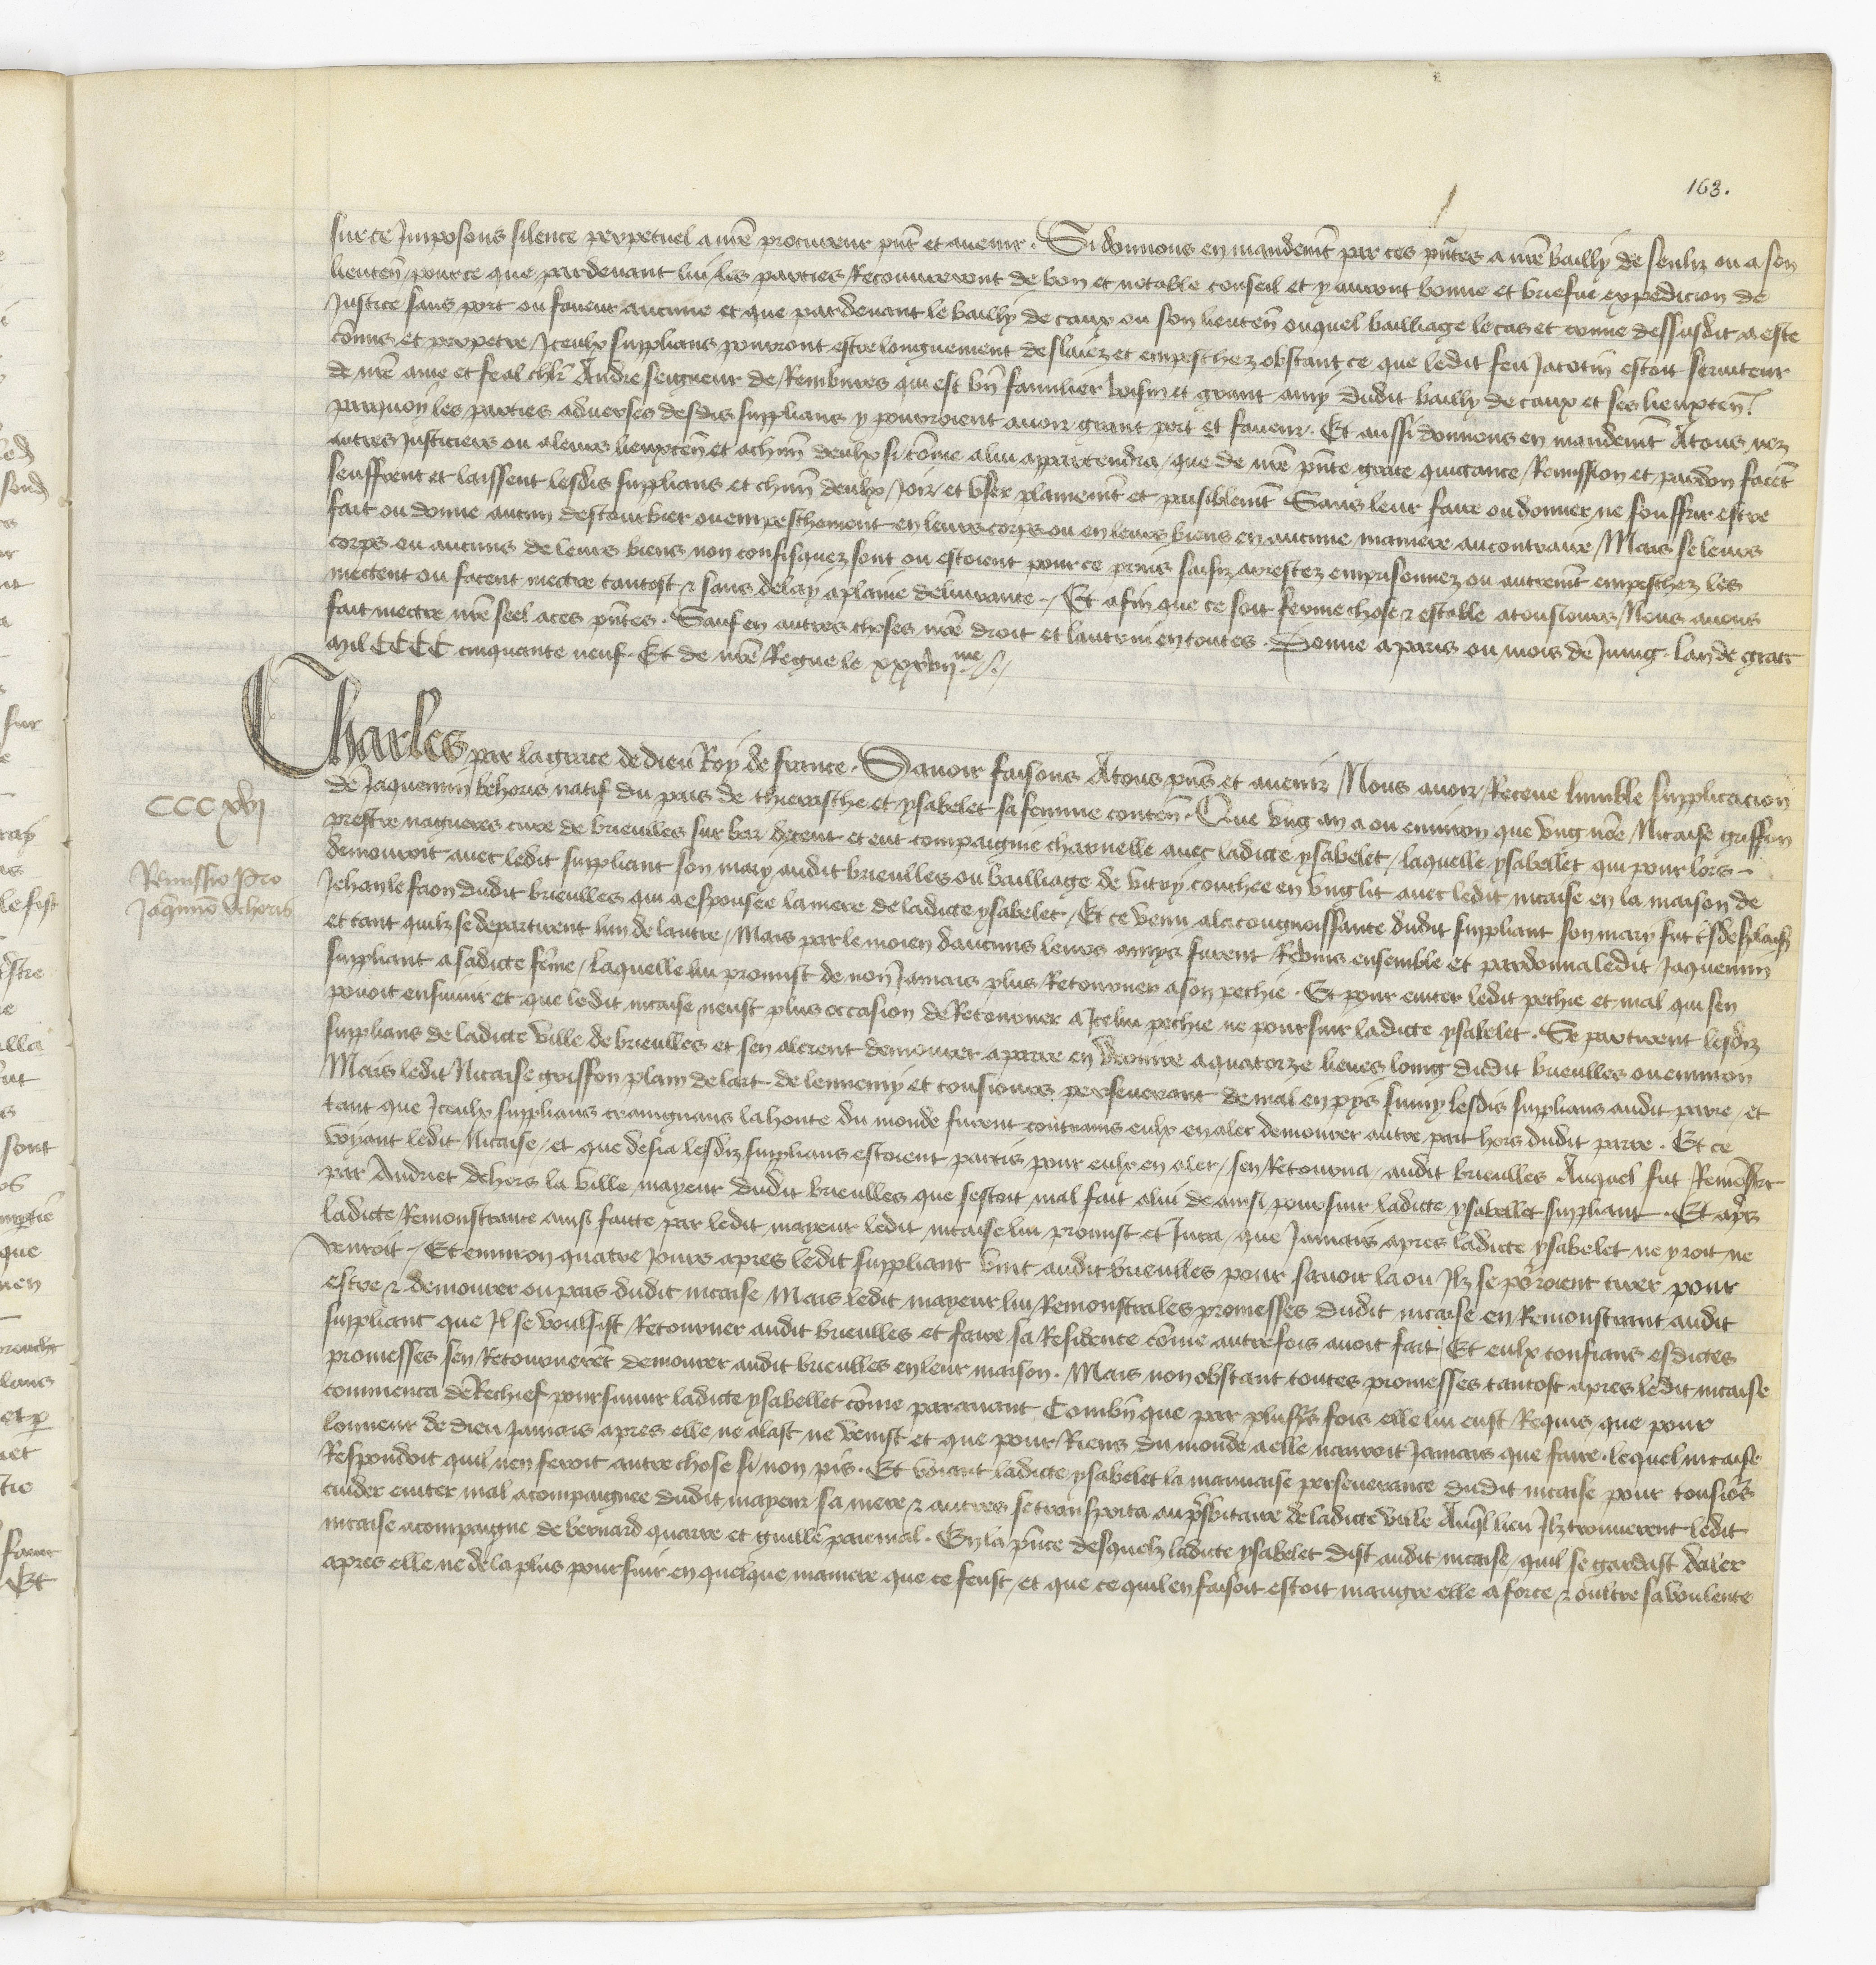 163.
sur ce Imposons silence perpetuel a nrẽ procureur pñt et auenir. Si donnons en mandemt̃ par ces pñtes a nrẽ bailly de senliz ou a son
lieuteñ, pource que pardeuant lui les parties Recouureront de bon et notable conseil et y auront bonne et briefue expedicion de
Justice sans port ou faueur aucune et que pardeuant le bailly de caux ou son lieuteñ ouquel bailliage le cas et crime dessusdit a este
cõmis et perpetre / Iceulx supplians pourront estre longuement deslaiez et empeschez obstant ce que ledit feu Jacotin estoit seruiteur
de nrẽ ame et feal chlr̃ Andre seigneur de Rembures qui est bñ familier voisin et grant amy dudit bailly de caux et ses lieuxteñ.
parquoy les parties aduerses desdis supplians y pourroient auoir grant port et faueur. Et aussi donnons en mandemt̃ A tous noz
autres Justiciers ou a leurs lieuxteñ et a chũn deulx si cõme a lui appartendra, que de nrẽ pñte grace quictance / Remission et pardon facẽt
seuffrent et laissent lesdis supplians et chũn deulx / Joir et vser plainemt̃ et paisiblemt̃ Sans leur faire ou donner ne souffrir estre
fait ou donne aucun destourbier ou empeschement en leurs corps ou en leurs biens en aucune maniere au contraire / Mais se leurs
corps ou aucuns de leurs biens non confisquez sont ou estoient pour ce prins saisiz arrestez emprisonnez ou autremt̃ empeschez les
mectent ou facent mectre tantost & sans delay a plaine deliurance. Et afin que ce soit ferme chose & estable a tousiours / Nous auons
fait mectre nrẽ seel a ces pñtes. Sauf en autres choses nrẽ droit et lautruy en toutes. Donne a paris ou mois de Juing. Lan de grace
mil CCCC cinquante neuf. Et de nrẽ Regne le xxxvijme ./.
CCCxvj
Remissio pro
Jaqmino behoris
Charles par la grace de dieu Roy de france. Sauoir faisons A tous pñs et auenir / Nous auoir Receue lumble supplicacion
de Jaquemin behoris natif du pais de thierasche et ysabelet sa femme conteñ. Que vng an a ou enuiron que vng nõe Nicaise griffon
prestre nagueres cure de brieulles sur bar decent et eut compaignie charnelle auec ladicte ysabelet / laquelle ysabellet qui pour lors
demouroit auec ledit suppliant son mary audit brieulles ou bailliage de vitry couchee en vng lit auec ledit nicaise en la maison de
Jehan le faon dudit brieulles qui a espousee la mere de ladicte ysabelet / Et ce venu a la congnoissance dudit suppliant son mary fut t̃sdesplaisãt
et tant quilz se departirent lun de lautre / Mais par le moien daucuns leurs amys furent Rebmis ensemble et pardonna ledit Jaquemin
suppliant a sadicte fẽme / laquelle lui promist de non Jamais plus Retourner a son pechie. Et pour euiter ledit pechie et mal qui sen
pouoit ensuiuir et que ledit nicaise neust plus occasion de Retourner a Icelui pechie ne poursuir ladicte ysabelet. Se partirent lesdiz
supplians de ladicte ville de brieulles et sen alerent demourer a parre en a quatorze lieues loing dudit brieulles ou enuiron
Mais ledit Nicaise griffon plain de lart de lennemy et tousiours perseuerant de mal en pys suiuy lesdis supplians audit parre / et
tant que Iceulx supplians craingnans la honte du monde furent contrains eulx en aler demourer autre part hors dudit parre. Et ce
voyant ledit Nicaise / et que desia lesdiz supplians estoient partis pour eulx en aler / sen Retourna audit brieulles Auquel fut Remõstre
par Andriet dehors la ville mayeur dudit brieulles que sestoit mal fait a lui de ainsi poursuir ladicte ysabellet suppliant. Et apr̃s
ladicte Remonstrance ainsi faicte par ledit mayeur ledit nicaise lui promist et Jura que Jamais apres ladicte ysabelet ne yroit ne
venroit. Et enuiron quatre Jours apres ledit suppliant vint audit brieulles pour sauoir la ou Ilz se porroient tirer pour
estre & demourer ou pais dudit nicaise Mais ledit mayeur lui Remonstra les promesses dudit nicaise en Remonstrant audit
suppliant que Il se voulsist Retourner audit brieulles et faire sa Residence cõme autrefois auoit fait / Et eulx confians esdictes
promesses sen Retournerẽt demourer audit brieulles en leur maison. Mais non obstant toutes promesses tantost apres ledit nicaise
commenca de Rechief poursuiuir ladicte ysabellet cõme parauant Combñ que par plusr̃s fois elle lui eust Requis que pour
lonneur de dieu Jamais apres elle ne alast ne venist et que pour Riens du monde a elle nauroit Jamais que faire. Lequel nicaise
Respondoit quil nen feroit autre chose si non pis. Et voiant ladicte ysabelet la mauuaise perseuerance dudit nicaise pour tousio᷒s
cuider euiter mal acompaignee dudit mayeur sa mere & autres se transporta au pr̃sbitaire de ladicte ville Auq̃l lieu Ilz trouuerent ledit
nicaise acompaigne de bernard quarre et guillẽ parmal. En la pñce desquelz ladicte ysabelet dist audit nicaise, quil se gardast daler
apres elle ne de la plus poursuir en quelque maniere que ce feust / et que ce quil en faisoit estoit maugre elle a force & oultre sa voulente